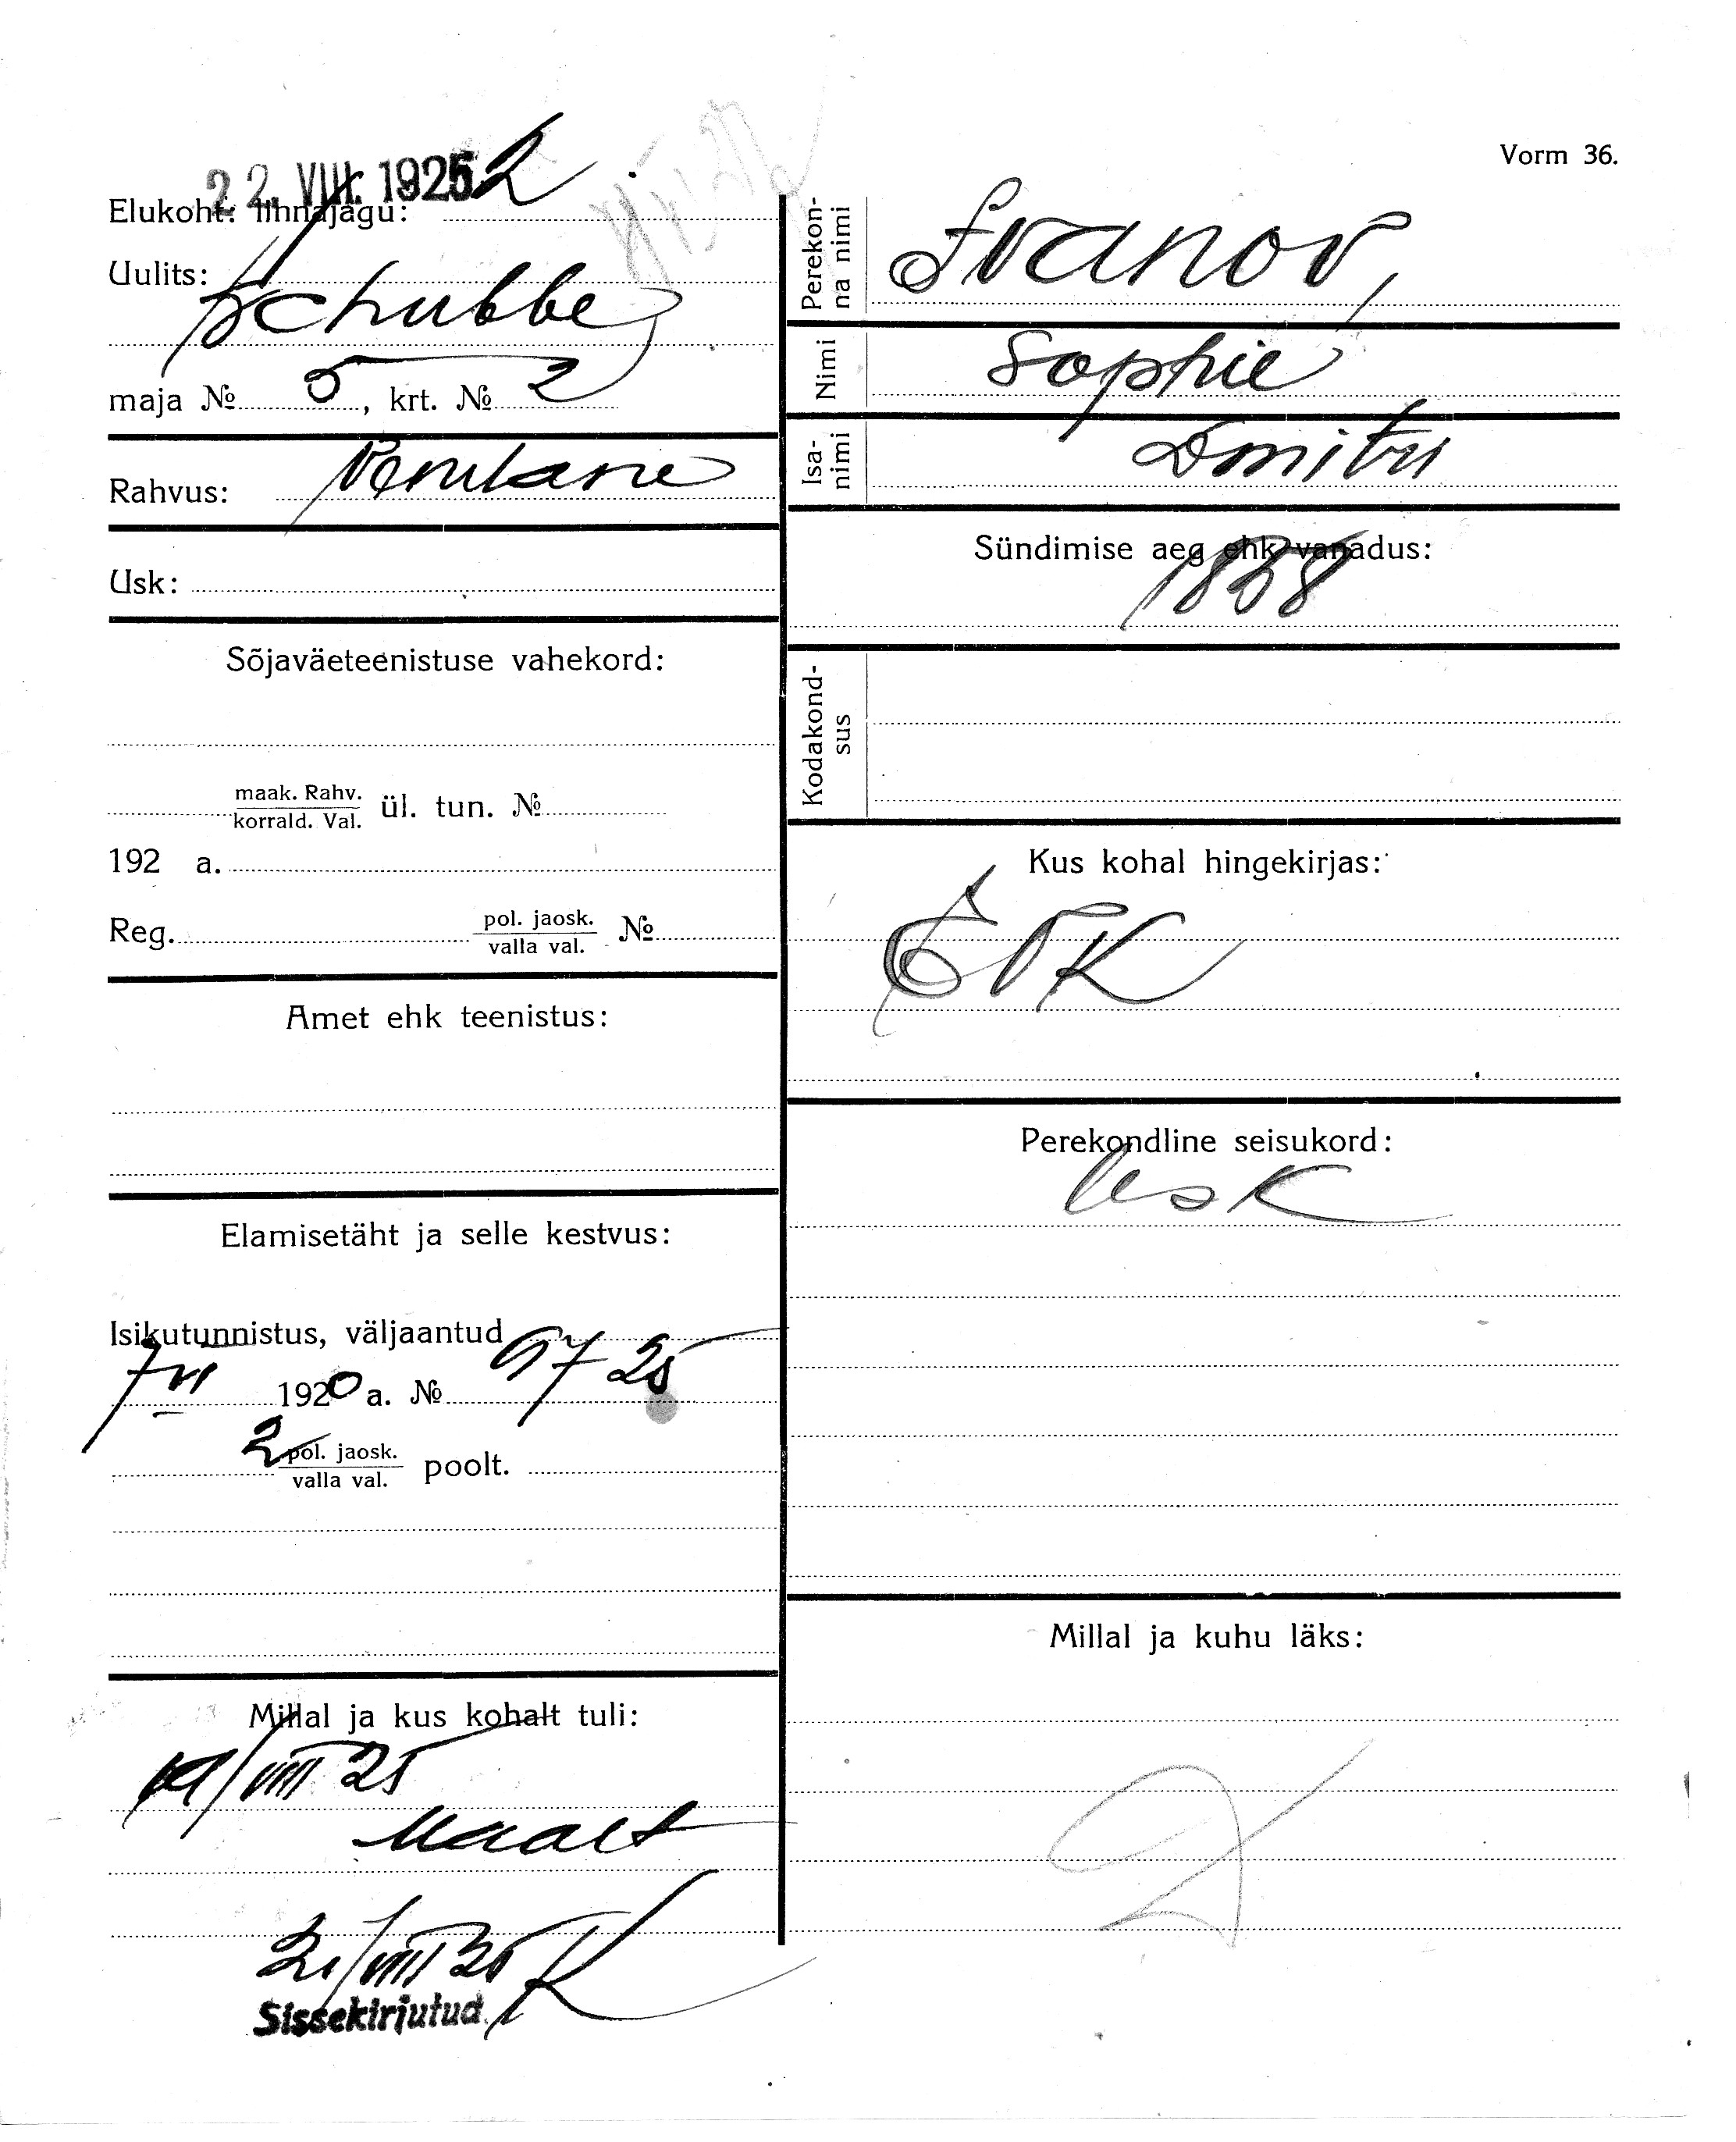 Vorm 36.
22. VIII. 1925
Elukoht: linnajagu: 2
Uulits:
Schubbe
maja № 5, krt. № 2
Rahvus: Venelane
Usk:
Sõjaväeteenistuse vahekord:
maak. Rahv.
korrald. Val. ül. tun. №
192 a.
Reg. pol. jaosk.
valla val. №
Amet ehk teenistus:
Elamisetäht ja selle kestvus:
Isikutunnistus, väljaantud
7 VI 1920 a. № 9725
2 pol. jaosk.
valla val. poolt.
Millal ja kus kohalt tuli:
19/VIII 25
Maalt
21/VIII 25 K
Sissekirjutud
Perekonna nimi
Ivanov,
Nimi
Sophie
Isanimi
Dmitri
Sündimise aeg ehk vanadus:
1858
Kodakondsus
Kus kohal hingekirjas:
EVK
Perekondline seisukord:
lesk
Millal ja kuhu läks: